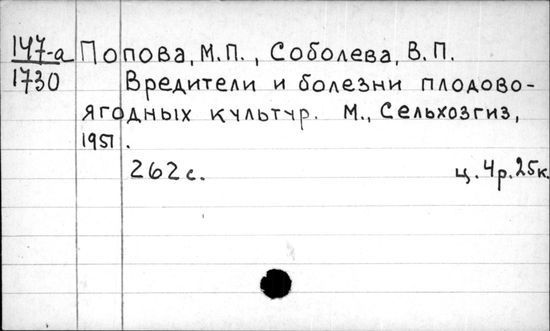 147-а Попова, М.П., Соболева, В.П.
1730 Вредители и болезни плодово-
ягодных культур. М., Сельхозгиз,
1951.
262 с. ц. 4р. 25к.